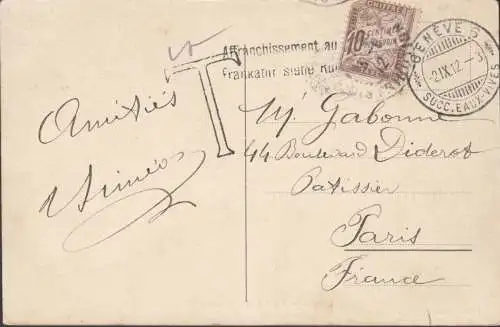 Affranchissement au
Frankatur siehe
T
10
CENTIMES
GENÈVE 5
2.IX.12
SUCC. EAUX-VIVES
Amitiés
Mr Gabonne
44 Boulevard Diderot
Patissier
Paris
France